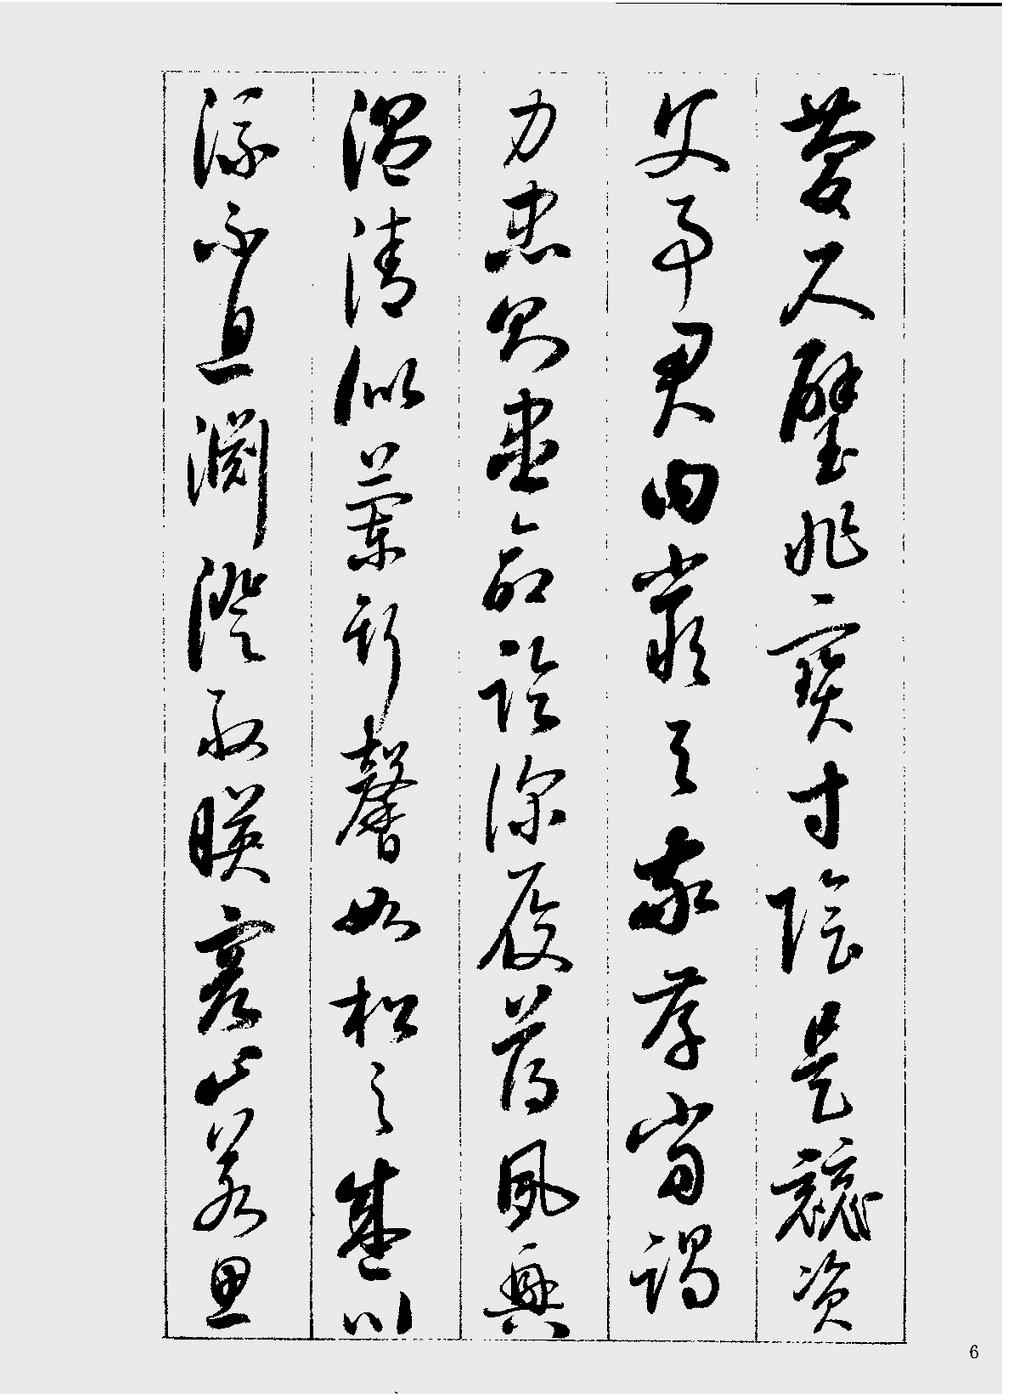 慶尺璧非寶寸陰是競資
父事君曰嚴与敬孝當竭
力忠則盡命臨深履薄夙興
溫清似蘭斯馨如松之盛川
流不息淵澄取映容止若思
6